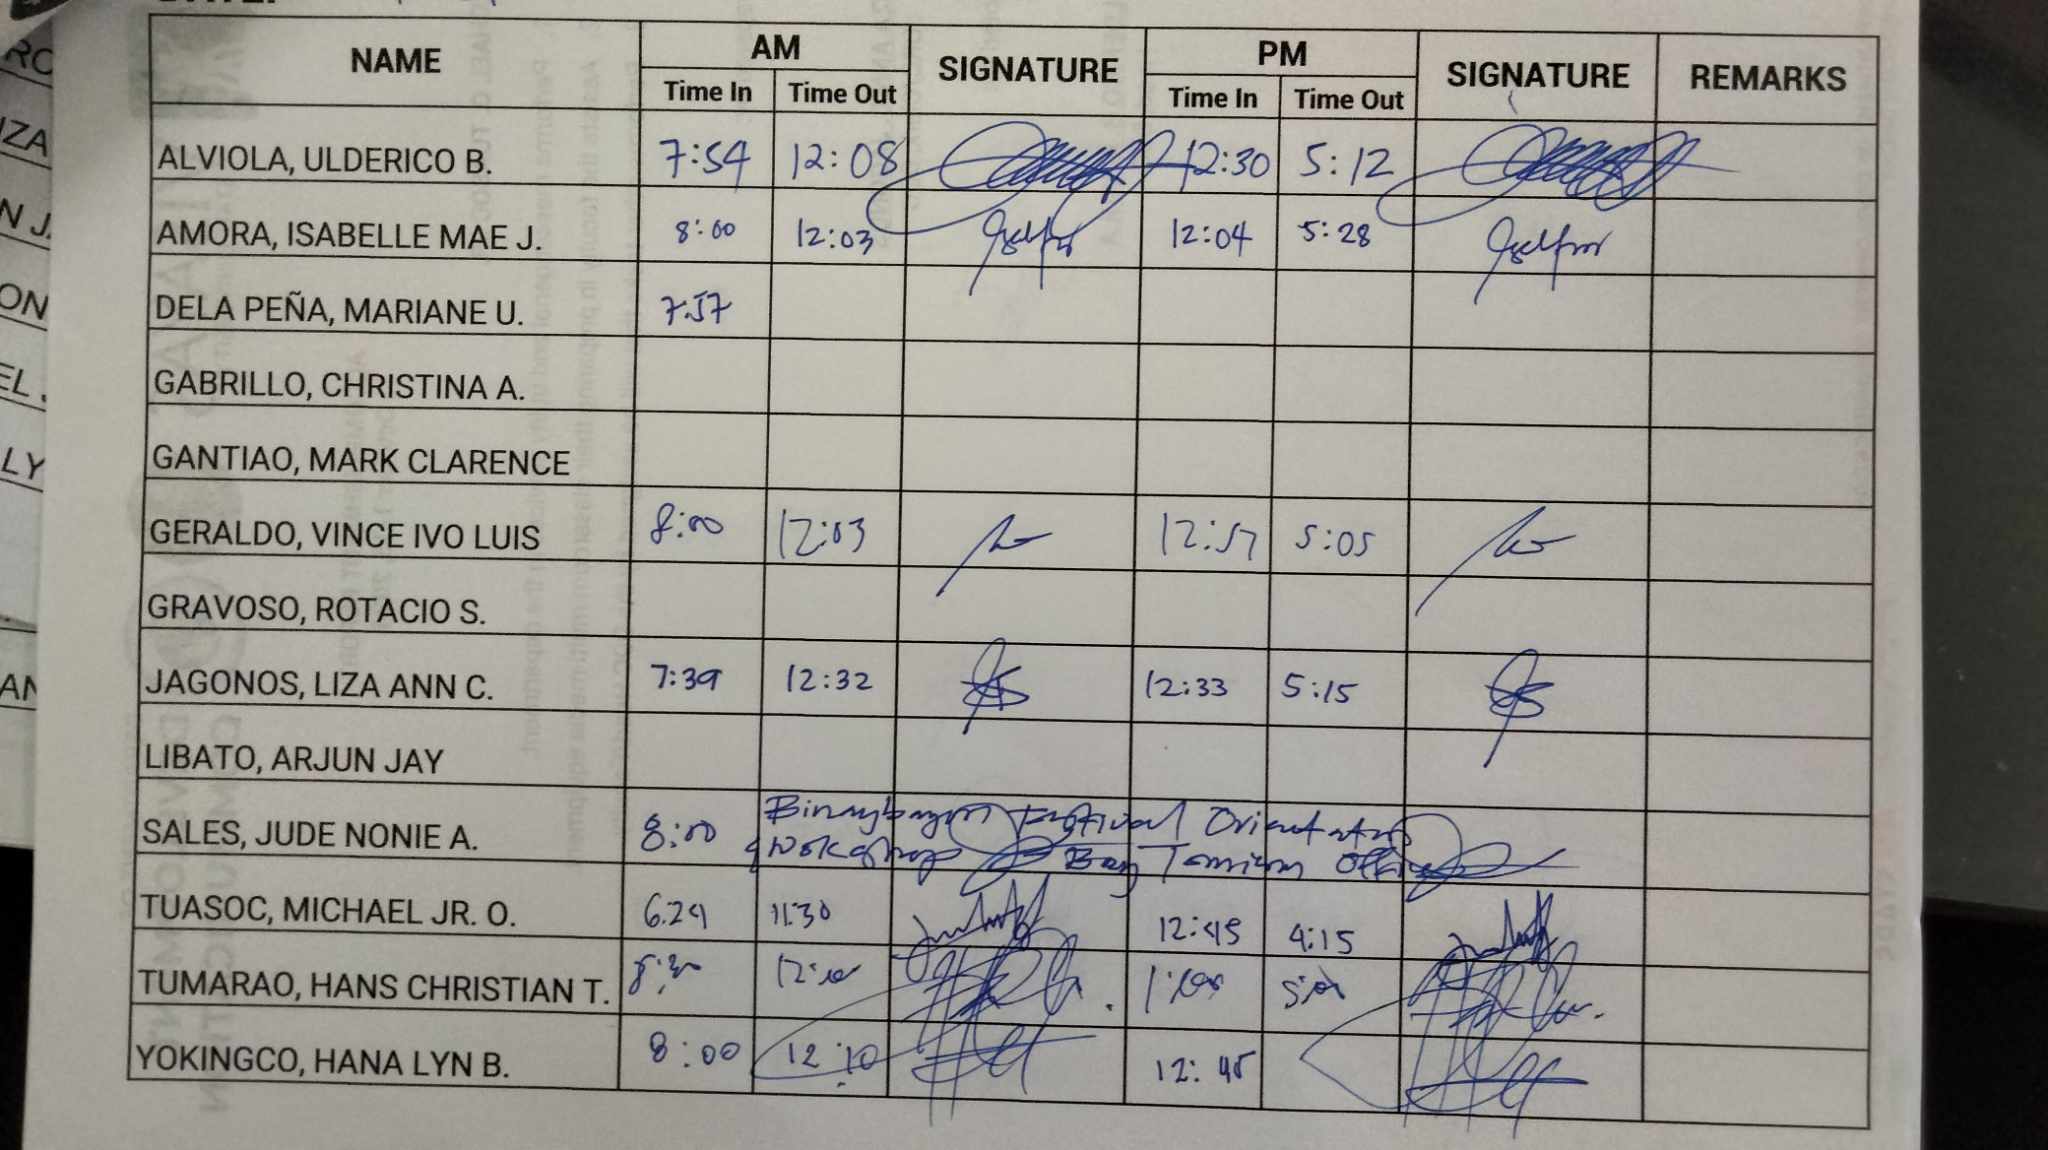 NAME AM SIGNATURE PM SIGNATURE REMARKS
Time In Time Out Time In Time Out
ALVIOLA, ULDERICO B. 7:54 12:08 12:30 5:12
AMORA, ISABELLE MAE J. 8:00 12:03 12:04 5:28
DELA PEÑA, MARIANE U. 7:57
GABRILLO, CHRISTINA A.
GANTIAO, MARK CLARENCE
GERALDO, VINCE IVO LUIS 8:00 12:03 12:57 5:05
GRAVOSO, ROTACIO S.
JAGONOS, LIZA ANN C. 7:39 12:32 12:33 5:15
LIBATO, ARJUN JAY
Binaybayon Festival Orientation
SALES, JUDE NONIE A. 8:00
& Workshop Bay Tourism Office
TUASOC, MICHAEL JR. O. 6:29 11:30 12:45 4:15
TUMARAO, HANS CHRISTIAN T. 12:00 1:00 5:01
YOKINGCO, HANA LYN B. 8:00 12:10 12:45